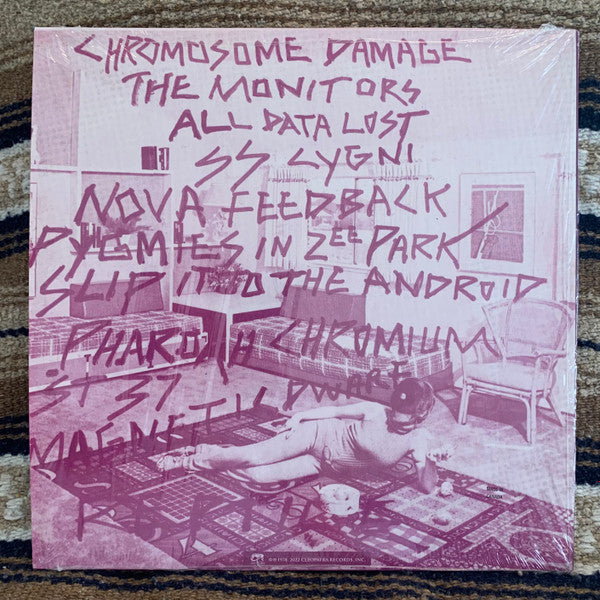 CHROMOSOME DAMAGE
THE MONITORS
ALL DATA LOST
SS CYGNI
NOVA FEEDBACK
PYGMIES IN ZEE PARK
SLIP IT TO THE ANDROID
PHAROAH CHROMIUM
ST 37
MAGNETIC DWARF
© ℗ 1978, 2022 CLEOPATRA RECORDS, INC.